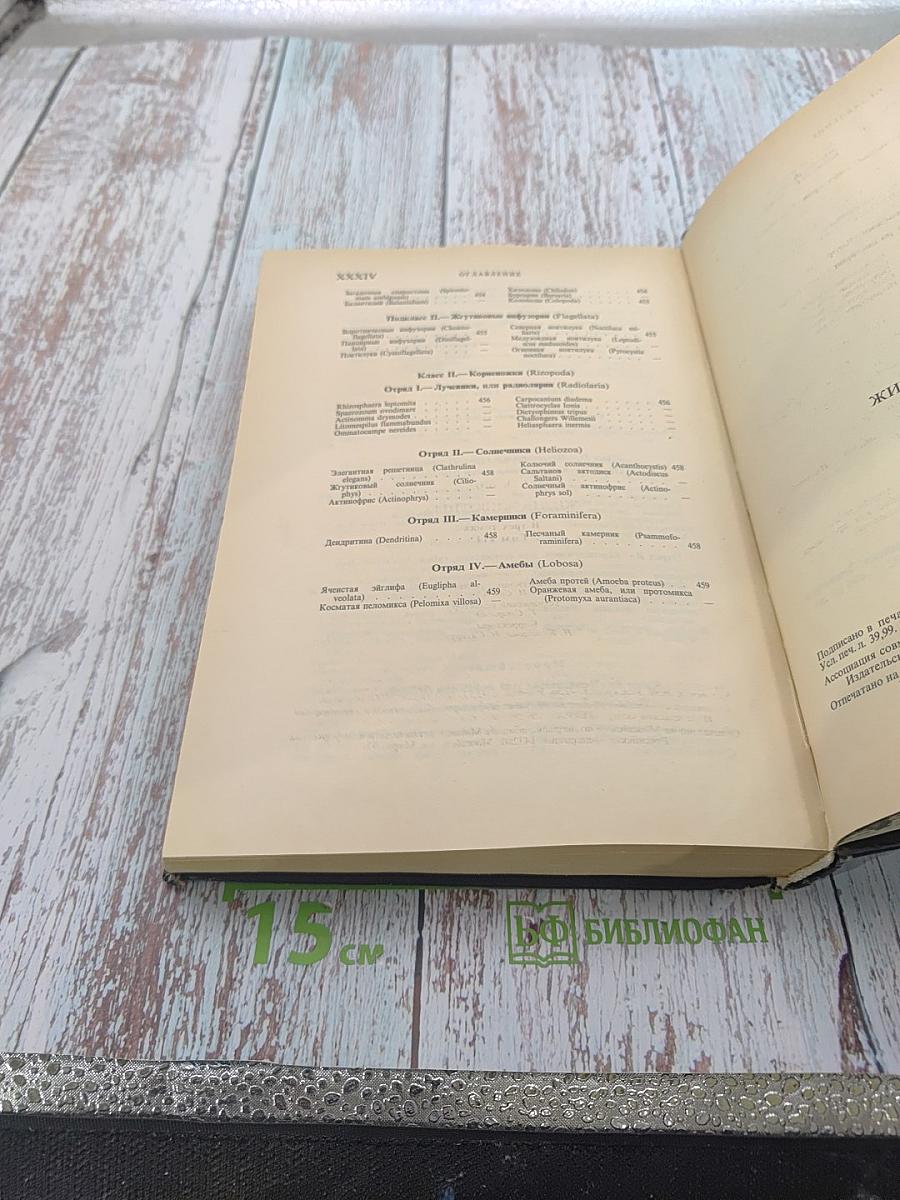 XXXIV ОГЛАВЛЕНИЕ
454
Балантидий (Balantidium)
Хилодоны (Chilodon) 454
Бурсария (Bursaria)
Колподы (Colpoda) 455
Подкласс II.— Жгутиковые инфузории (Flagellata)
Воротничковые инфузории (Choano-
flagellata) 455
Панцирные инфузории (Dinoflagel-
lata) —
Ноктилуки (Cystoflagellata) —
Северная ноктилука (Noctiluca mi-
liaris) 455
Медузовидная ноктилука (Leptodi-
scus medusoides) —
Огненная ноктилука (Pyrocystis
noctiluca) —
Класс II.— Корненожки (Rizopoda)
Отряд I.— Лучевики, или радиолярии (Radiolaria)
Rhizosphaera leptomita 456
Sphaerozoum ovodimare —
Actinomma drymodes —
Litomespilus flammabundus —
Ommatocampe nereides —
Carpocanium diadema 456
Clattrocyclas Ionis —
Dictyophimus tripus —
Challongers Willemesii —
Heliasphera inermis —
Отряд II.— Солнечники (Heliozoa)
Элегантная решетница (Clathrulina
elegans) 458
Жгутиковый солнечник (Cilio-
phys) —
Актинофрис (Actinophrys) —
Колючий солнечник (Acanthocystis) 458
Сальтанов актодиск (Actodiscus
Saltani) —
Солнечный актинофрис (Actino-
phrys sol) —
Отряд III.— Камерники (Foraminifera)
Дендритина (Dendritina) 458
Песчаный камерник (Psammofo-
raminifera) 458
Отряд IV.— Амебы (Lobosa)
Ячеистая эйглифа (Euglipha al-
veolata) 459
Косматая пеломикса (Pelomixa villosa) —
Амеба протей (Amoeba proteus) 459
Оранжевая амеба, или протомикса
(Protomyxa aurantiaca) —
ЖИ
Подписано в печа
Усл. печ. л. 39,99.
Ассоциация сов
Издательс
Отпечатано на
15 см
БФ БИБЛИОФАН